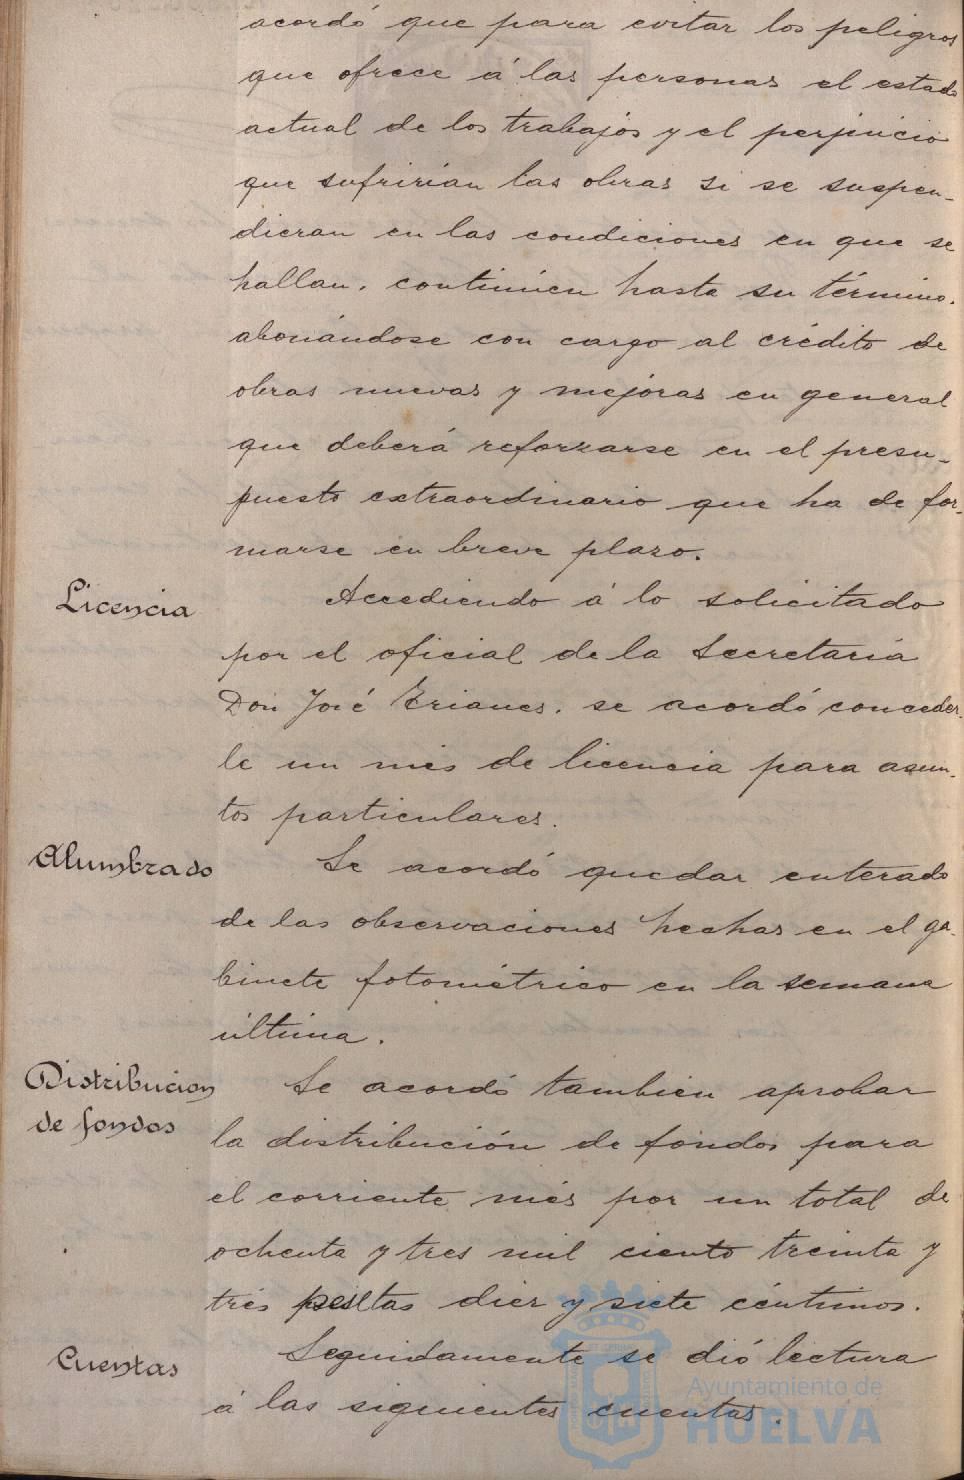 acordó que para evitar los peligros
que ofrece á las personas el estado
actual de los trabajos y el perjuicio
que sufririan las obras si se suspen-
dieran en las condiciones en que se
hallan, continúen hasta su término,
abonándose con cargo al crédito de
obras nuevas y mejoras en general
que deberá reforzarse en el presu-
puesto extraordinario que ha de for-
marse en breve plazo.
Licencia
Accediendo á lo solicitado
por el oficial de la Secretaría
Don José Trianes, se acordó conceder-
le un mes de licencia para asun-
tos particulares.
Alumbrado
Se acordó quedar enterado
de las observaciones hechas en el ga-
binete fotométrico en la semana
última.
Distribucion
de fondos
Se acordó tambien aprobar
la distribución de fondos para
el corriente més por un total de
ochenta y tres mil ciento treinta y
tres pesetas diez y siete céntimos.
Cuentas
Seguidamente se dió lectura
á las siguientes cuentas.
Ayuntamiento de
HUELVA